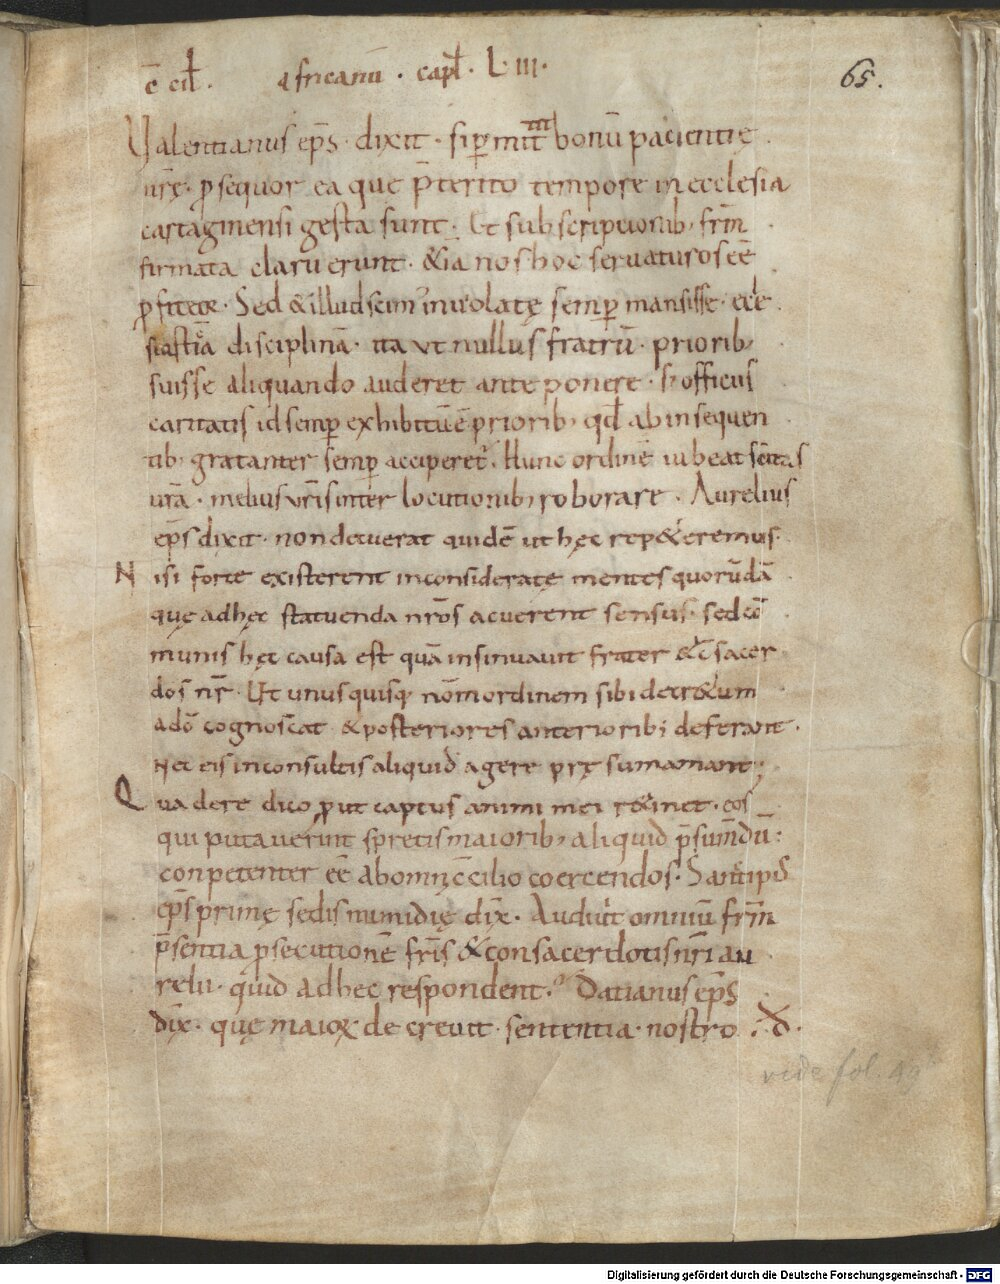 c̄ cil̄. africanū . capl̄ . L III.
65.
Valentianus ep̄s . dixit . si ꝑmittit bonū pacientię
nr̄ę . ꝓsequor ea que p̄terito tempore in ecclesia
cartaginensi gesta sunt . Et subscriptionib; fr̄m
firmata claruerunt . &iā nos hoc servaturos eē
ꝓfiteor . Sed & illud scim' inviolatę semꝑ mansisse . eccłe
siasticā disciplinā . ita ut nullus fratrū . priorib;
suisse aliquando auderet ante ponere . s; officiis
caritatis id semꝑ exhibitū ē priorib; qđ ab insequen
tib; gratanter semꝑ acciperet' . Hunc ordinē iubeat sc̄itas
ur̄a . melius ur̄is inter locutionib; roborare . Aurelius
ep̄s dixit . non decuerat quidē ut hęc rep&eremus .
Nisi forte existerent inconsideratę mentes quorūdā
quę ad hęc statuenda nr̄os acuerent sensus . sed cō
munis hęc causa est quā insinuavit frater & c̄sacer
dos nr̄ . Ut unusquisq; nōm ordinem sibi decr&um
a dō cognoscat & posteriores anteriorib; deferant .
Nec eis inconsultis aliquid agere pręsumamant ;
Qua de re dico ꝓut captus animi mei r&inet . eos
qui putaverint spretis maiorib; aliquid p̄sumendū :
conpetenter eē ab omni c̄cilio coercendos . Santipꝰ
ep̄s primę sedis numidię dix̄ . Audivit omniū fr̄m
p̄sentia ꝓsecutionē fr̄is & consacerdotis nr̄i au
relii . quid ad hec respondent . Datianus ep̄s
dix̄ . quę maioꝝ decrevit . sententia . nostro
vide fol. 49
Digitalisierung gefördert durch die Deutsche Forschungsgemeinschaft - DFG